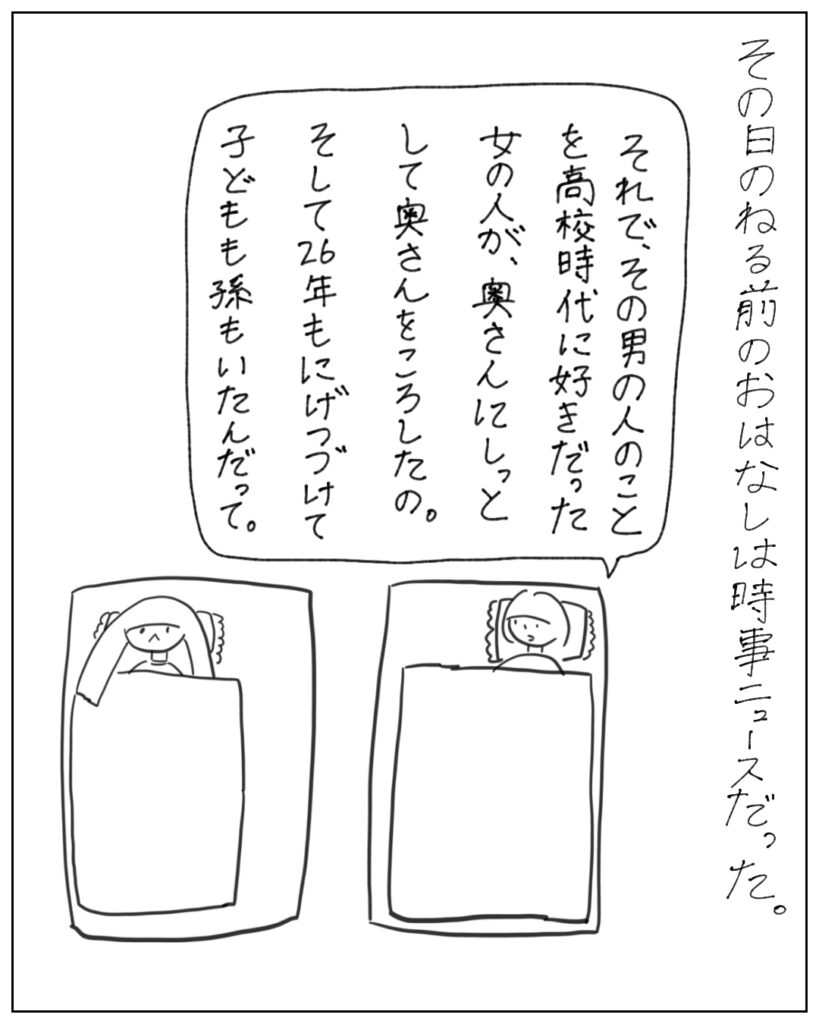 その日のねる前のおはなしは時事ニュースだった。
それで、その男の人のこと
を高校時代に好きだった
女の人が、奥さんにしっと
して奥さんをころしたの。
そして26年もにげつづけて
子どもも孫もいたんだって。